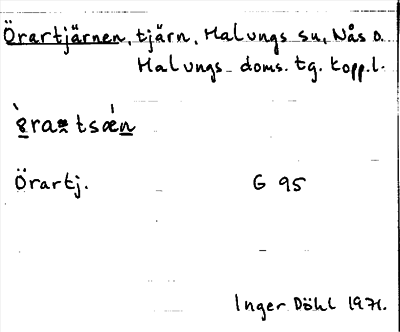 Örartjärnen, tjärn, Malungs sn, Nås o.
Malungs doms. tg. Kopp.l.
Örartj. G 95
Inger Döhl 1971.